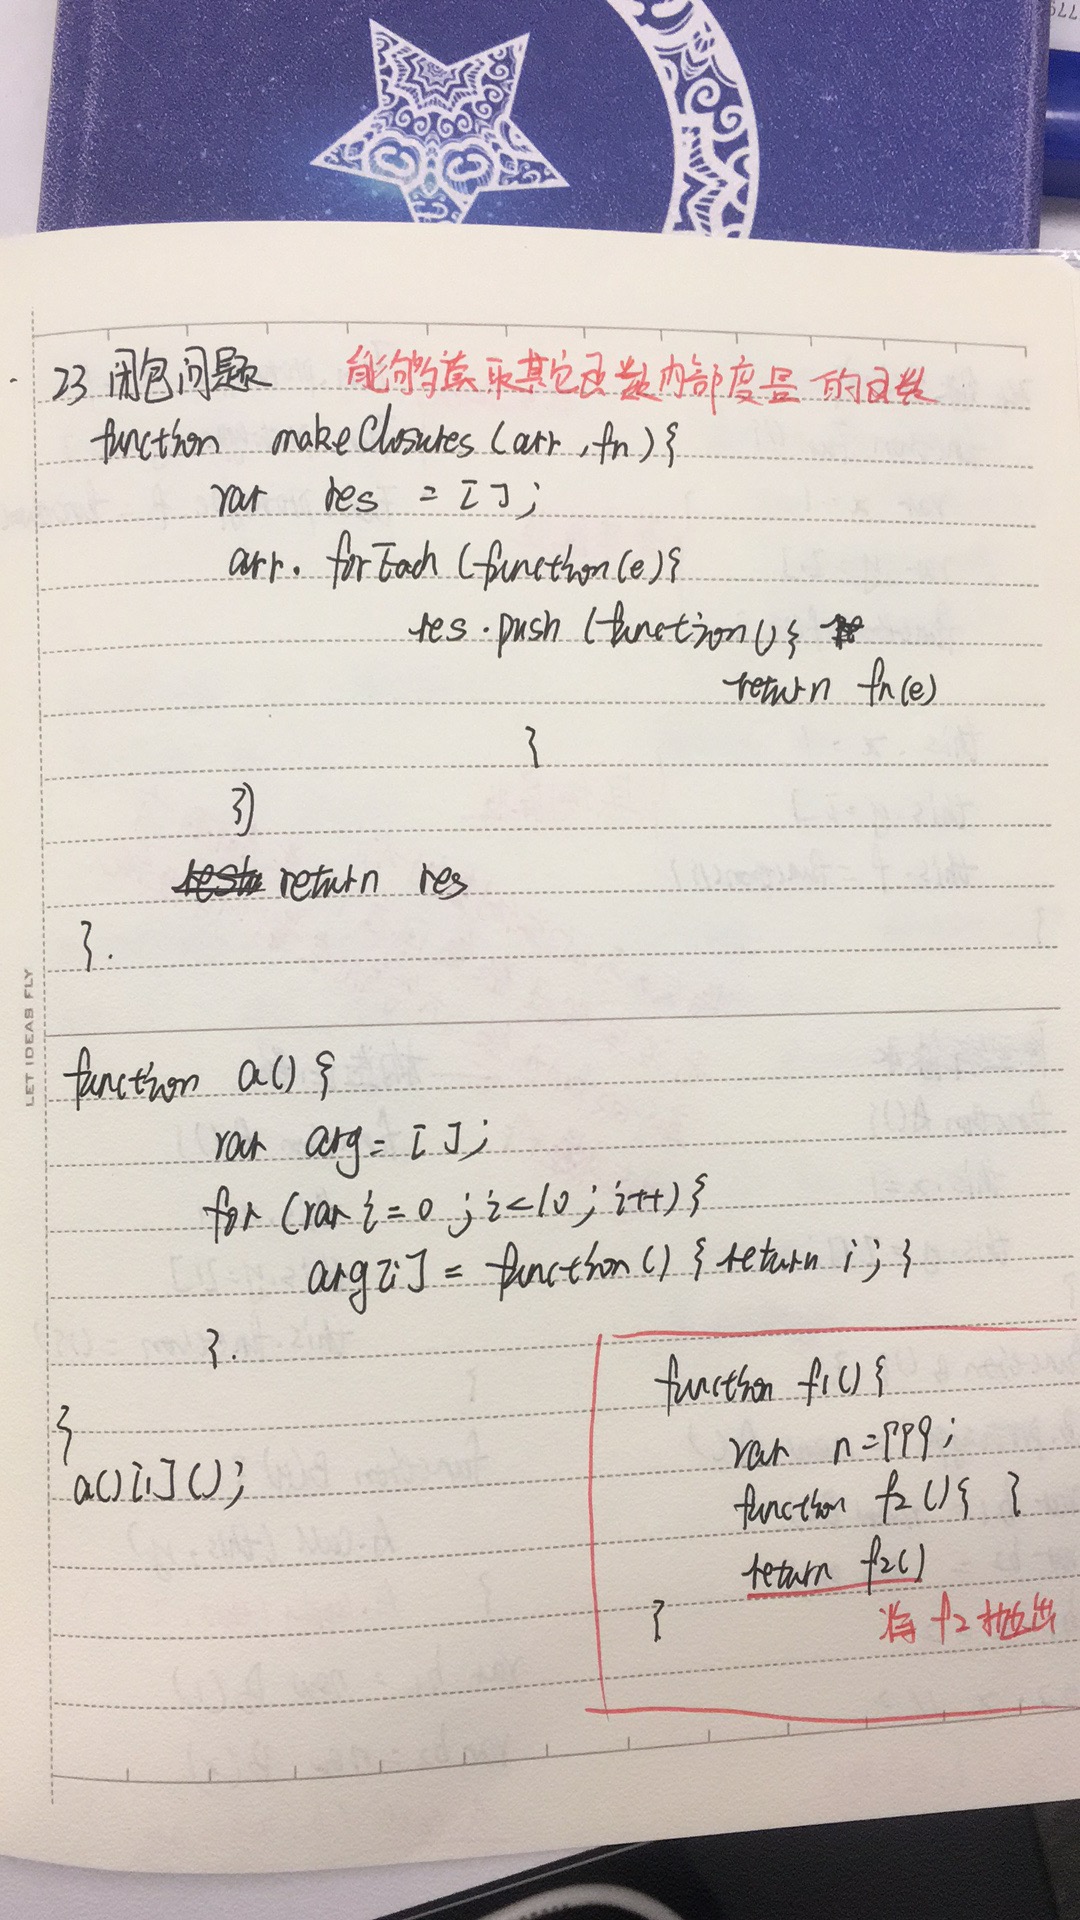 23 闭包问题 能够读取其它函数内部度量的函数
function makeClosures (arr, fn) {
var res = [ ];
arr. forEach (function(e){
res.push (function(){
return fn(e)
}
})
return res
}.
function a() {
var arg = [ ];
for (var i = 0 ; i<10 ; i++) {
arg[i] = function() { return i ; }
}.
}
a()[1]();
function f1() {
var n = 999;
function f2() { }
return f2()
}
将 f2 抛出
LET IDEAS FLY